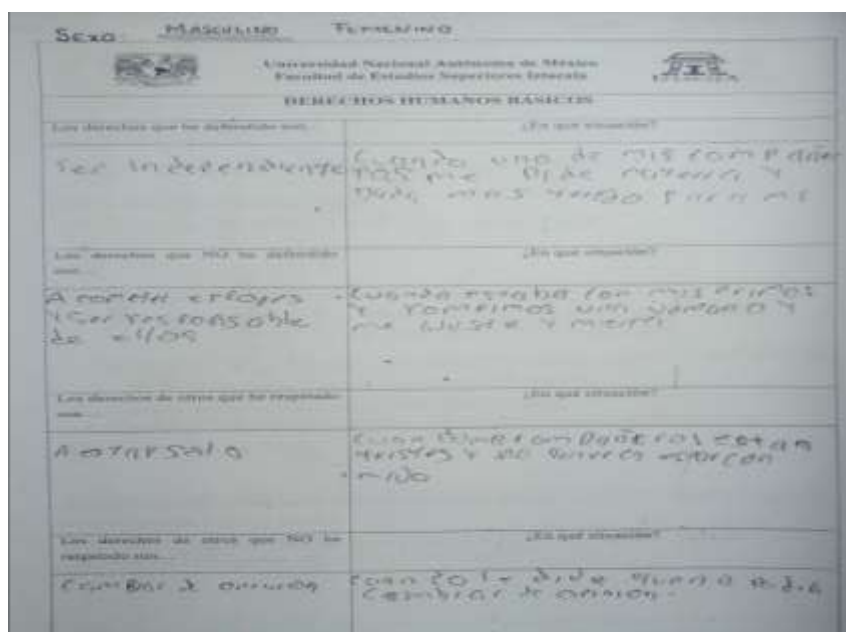 Sexo: MASCULINO FEMENINO
Universidad Nacional Autónoma de México
Facultad de Estudios Superiores Iztacala
DERECHOS HUMANOS BÁSICOS
Los derechos que he defendido son... ¿En qué situación?
Ser independiente
Cuando uno de mis compañe
ros me pide
nada mas tengo para mi
Los derechos que NO he defendido
son...
¿En qué situación?
A cometer errores
y ser responsable
de ellos
Cuando estaba con mis primos
y rompimos una ventana y
me
Los derechos de otros que he respetado
son...
¿En qué situación?
A estar solo
compañeros estan
tristes y no quieren estar con
migo
Los derechos de otros que NO he
respetado son...
¿En qué situación?
Cambiar de opinion
Cuando le
Cambiar de opinion.